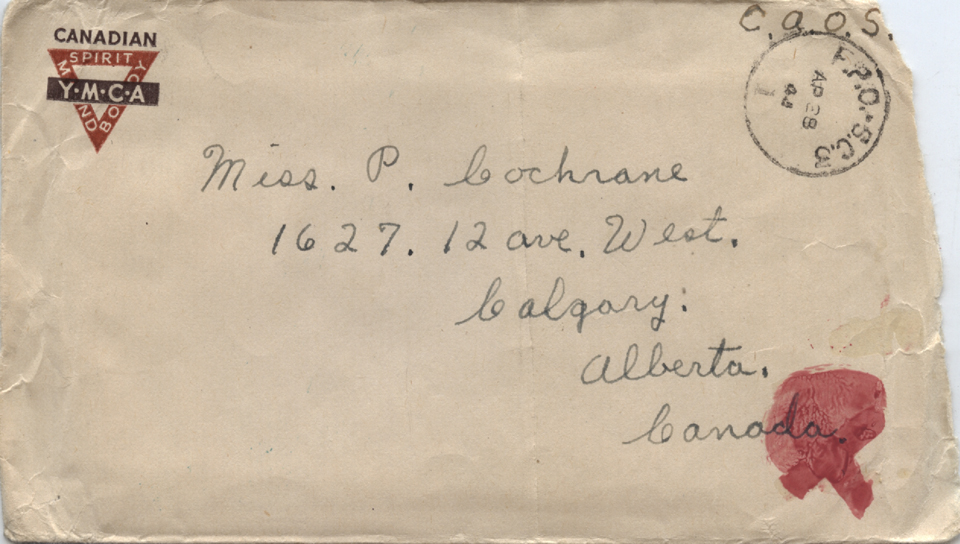 CANADIAN
SPIRIT
MIND
BODY
Y·M·C·A
C.A.O.S.
F.P.O. S.C.3
1
AP 28
44
Miss. P. Cochrane
1627. 12 ave. West.
Calgary:
Alberta.
Canada.